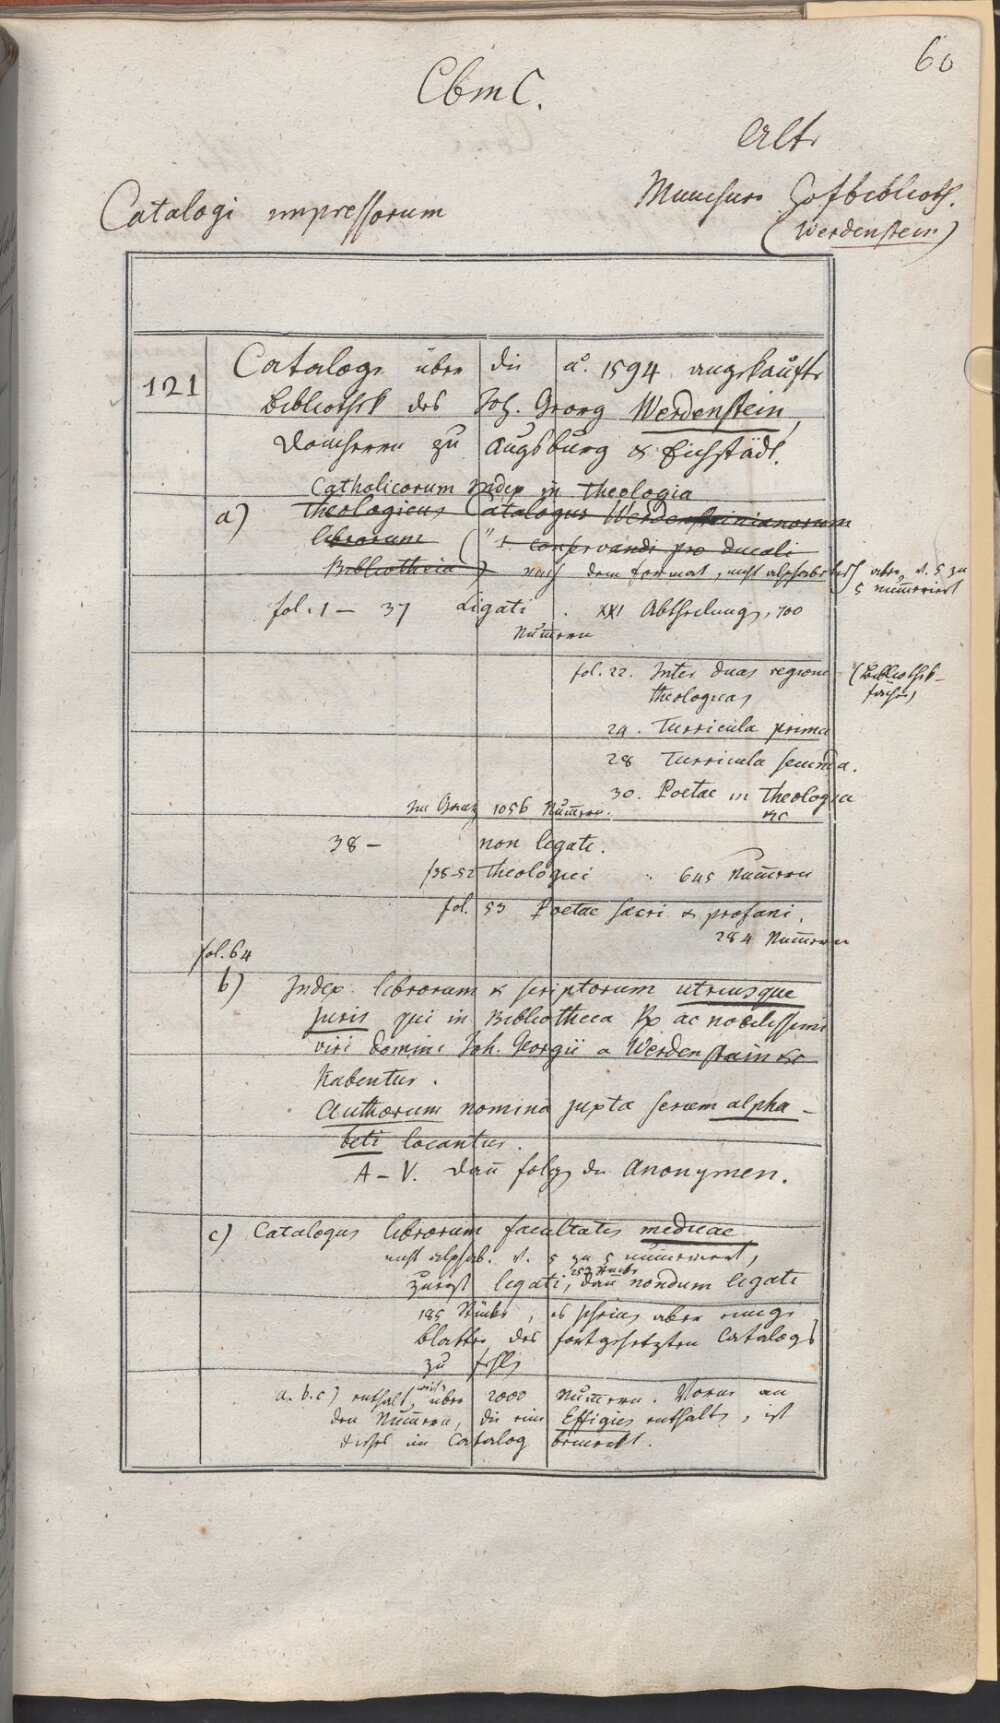 60
Cbm C.
Alte
Münchner Hofbiblioth.
Catalogi impressorum
(Werdenstein)
121
Cataloge über die ao. 1594 angekaufte
Bibliothek des Joh. Georg Werdenstein,
Domherrn zu Augsburg & Eichstädt.
Catholicorum Index in Theologia
a) Theologicus Catalogus Werdensteinianorum
librorum conservandi pro Ducali
Bibliotheca) nach dem Format, nicht alphabetisch aber v. 5 zu
5 num̄erirt
fol. 1 – 37 Ligati. XXI Abtheilung, 700
Num̄ern
fol. 22. Inter duas regiones (Bibliothek-
theologicas fächer)
24. Turricula prima
28 Turricula secunda.
30. Poetae in Theologia
&c
Im Ganz 1056 Num̄ern.
38 – non legati.
f 38-52 Theologici 645 Num̄ern
fol. 53 Poetae sacri & profani,
284 Num̄ern
fol. 64
b) Index librorum & scriptorum utriusque
juris qui in Bibliotheca Rx ac nobilissimi
viri Domini Joh. Georgii a Werdenstain &c
habentur.
Authorum nomina juxta seriem alpha-
beti locantur.
A – V. dan̄ folg die Anonymen.
c) Catalogus librorum facultatis medicae
nicht alphab. v. 5 zu 5 num̄erirt,
zuerst legati, 253 Stücke dan̄ nondum legati
185 Stücke, es scheint aber einige
Blätter des fortgesetzten Catalogs
zu fehlen
a. b. c) enthalt weit über 2000 Num̄ern. Vorne an
den Num̄ern, die eine Effigies enthalten, ist
dieses im Catalog bemerkt.